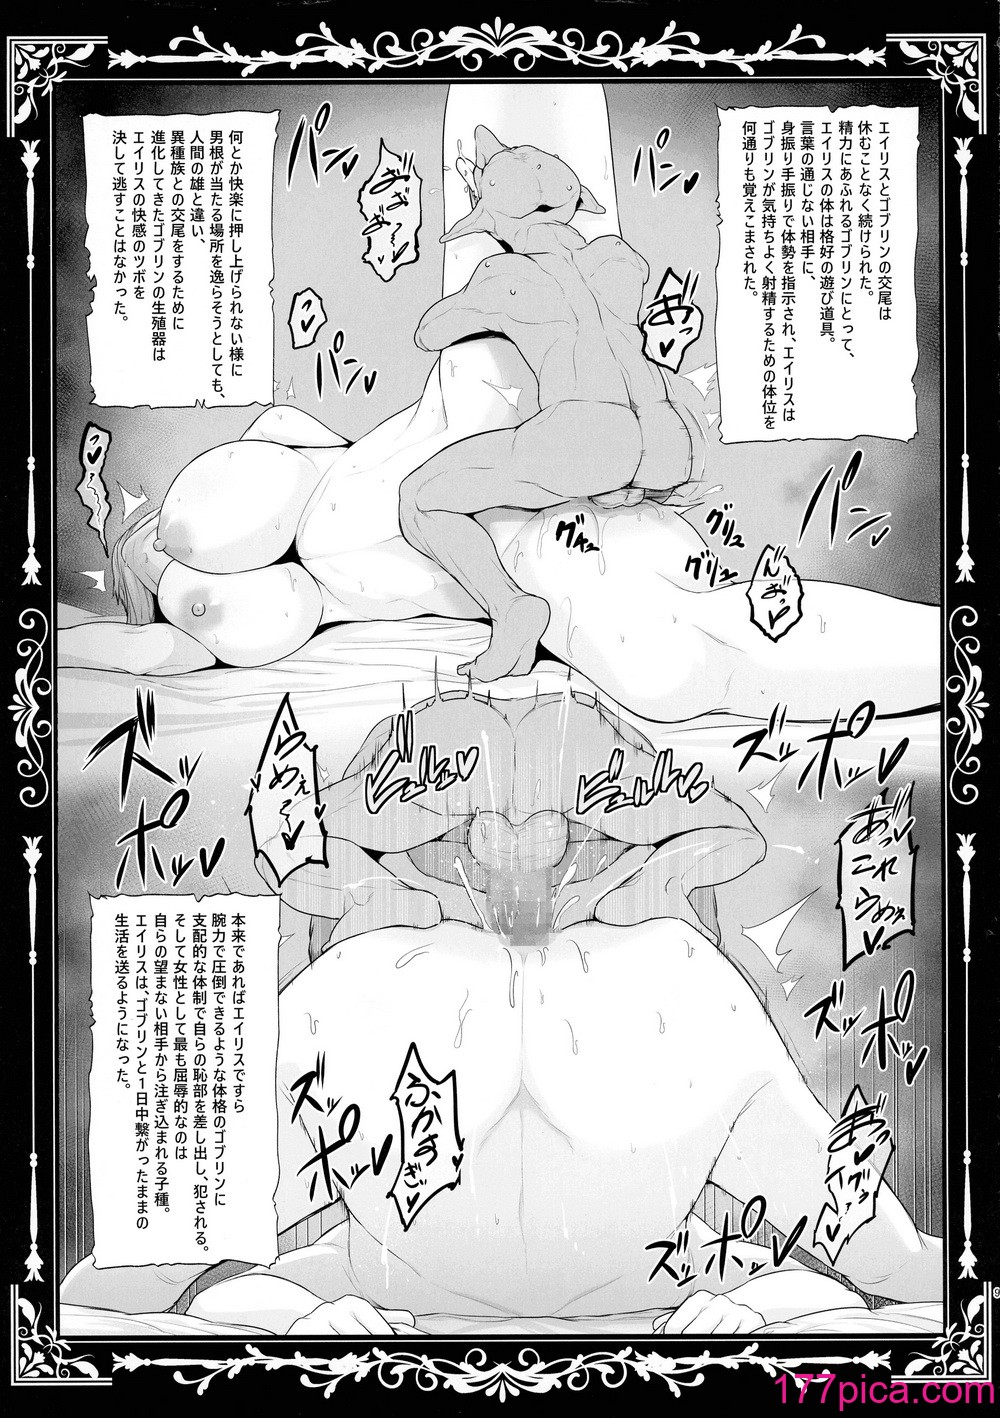 エイリスとゴブリンの交尾は
休むことなく続けられた。
精力にあふれるゴブリンにとって、
エイリスの体は格好の遊び道具。
言葉の通じない相手に、
身振り手振りで体勢を指示され、エイリスは
ゴブリンが気持ちよく射精するための体位を
何通りも覚えこまされた。
パンッ
あ゛っ♡
パン
パン♡
何とか快楽に押し上げられない様に
男根が当たる場所を逸らそうとしても、
人間の雄と違い、
異種族との交尾をするために
進化してきたゴブリンの生殖器は
エイリスの快感のツボを
決して逃すことはなかった。
パン♡
グチュ
グリュ
グリュ
ん゛
お゛っ♡
ズッポッ♡
ビュルルル♡
ビュルルッ♡
らめぇ〜♡
ズッ
ポッ♡
あっ
これ
らめぇ♡
ズッポッ♡
ふかす
ぎぃ♡
ズッ
ポッ♡
ズッポッ♡
本来であればエイリスですら
腕力で圧倒できるような体格のゴブリンに
支配的な体制で自らの恥部を差し出し、犯される。
そして女性として最も屈辱的なのは
自らの望まない相手から注ぎ込まれる子種。
エイリスは、ゴブリンと１日中繋がったままの
生活を送るようになった。
9
177pica.com